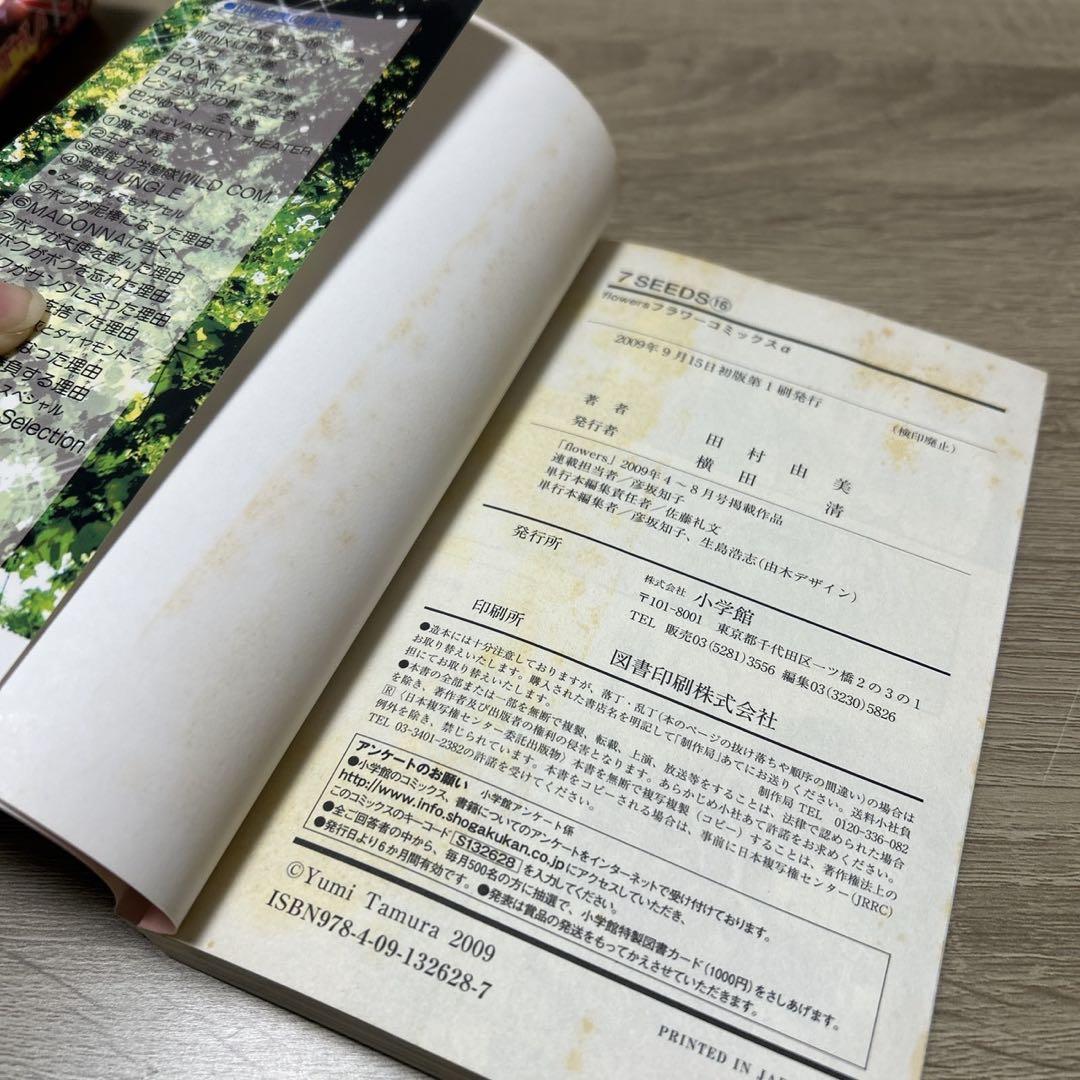 BASARA
●たむたむVARIETY THEATER
③超能力労働隊WILD COM.
JUNGLE
④ボクが泥棒になった理由
⑥MADONNAに告ぐ
⑦ボクが天使を産んだ理由
ボクがボクを忘れた理由
クがサンタに会った理由
を捨てた理由
とダイヤモンド
なった理由
負する理由
スペシャル
Selection
7SEEDS⑯
flowersフラワーコミックスα
2009年9月15日初版第1刷発行
(検印廃止)
著者 田村由美
発行者 横田清
「flowers」2009年4～8月号掲載作品
連載担当者/彦坂知子
単行本編集責任者/佐藤礼文
単行本編集者/彦坂知子、生島浩志(由木デザイン)
発行所
株式会社 小学館
〒101-8001 東京都千代田区一ツ橋2の3の1
TEL 販売03(5281)3556 編集03(3230)5826
印刷所 図書印刷株式会社
●造本には十分注意しておりますが、落丁・乱丁(本のページの抜け落ちや順序の間違い)の場合は
お取り替えいたします。購入された書店名を明記して「制作局」あてにお送りください。送料小社負
担にてお取り替えいたします。 制作局 TEL 0120-336-082
●本書の全部または一部を無断で複製、転載、上演、放送等をすることは、法律で認められた場合
を除き、著作者及び出版者の権利の侵害となります。あらかじめ小社あて許諾をお求めください。
R〈日本複写権センター委託出版物〉本書を無断で複写複製(コピー)することは、著作権法上の
例外を除き、禁じられています。本書をコピーされる場合は、事前に日本複写権センター(JRRC)
TEL 03-3401-2382の許諾を受けてください。
アンケートのお願い 小学館アンケート係
●小学館のコミックス、書籍についてのアンケートをインターネットで受け付けております。
http://www.info.shogakukan.co.jpにアクセスしていただき、
このコミックスのキーコード S132628 を入力してください。
●全ご回答者の中から、毎月500名の方に抽選で、小学館特製図書カード(1000円)をさしあげます。
●発行日より6か月間有効です。 ●発表は賞品の発送をもってかえさせていただきます。
©Yumi Tamura 2009
ISBN978-4-09-132628-7
PRINTED IN JAP